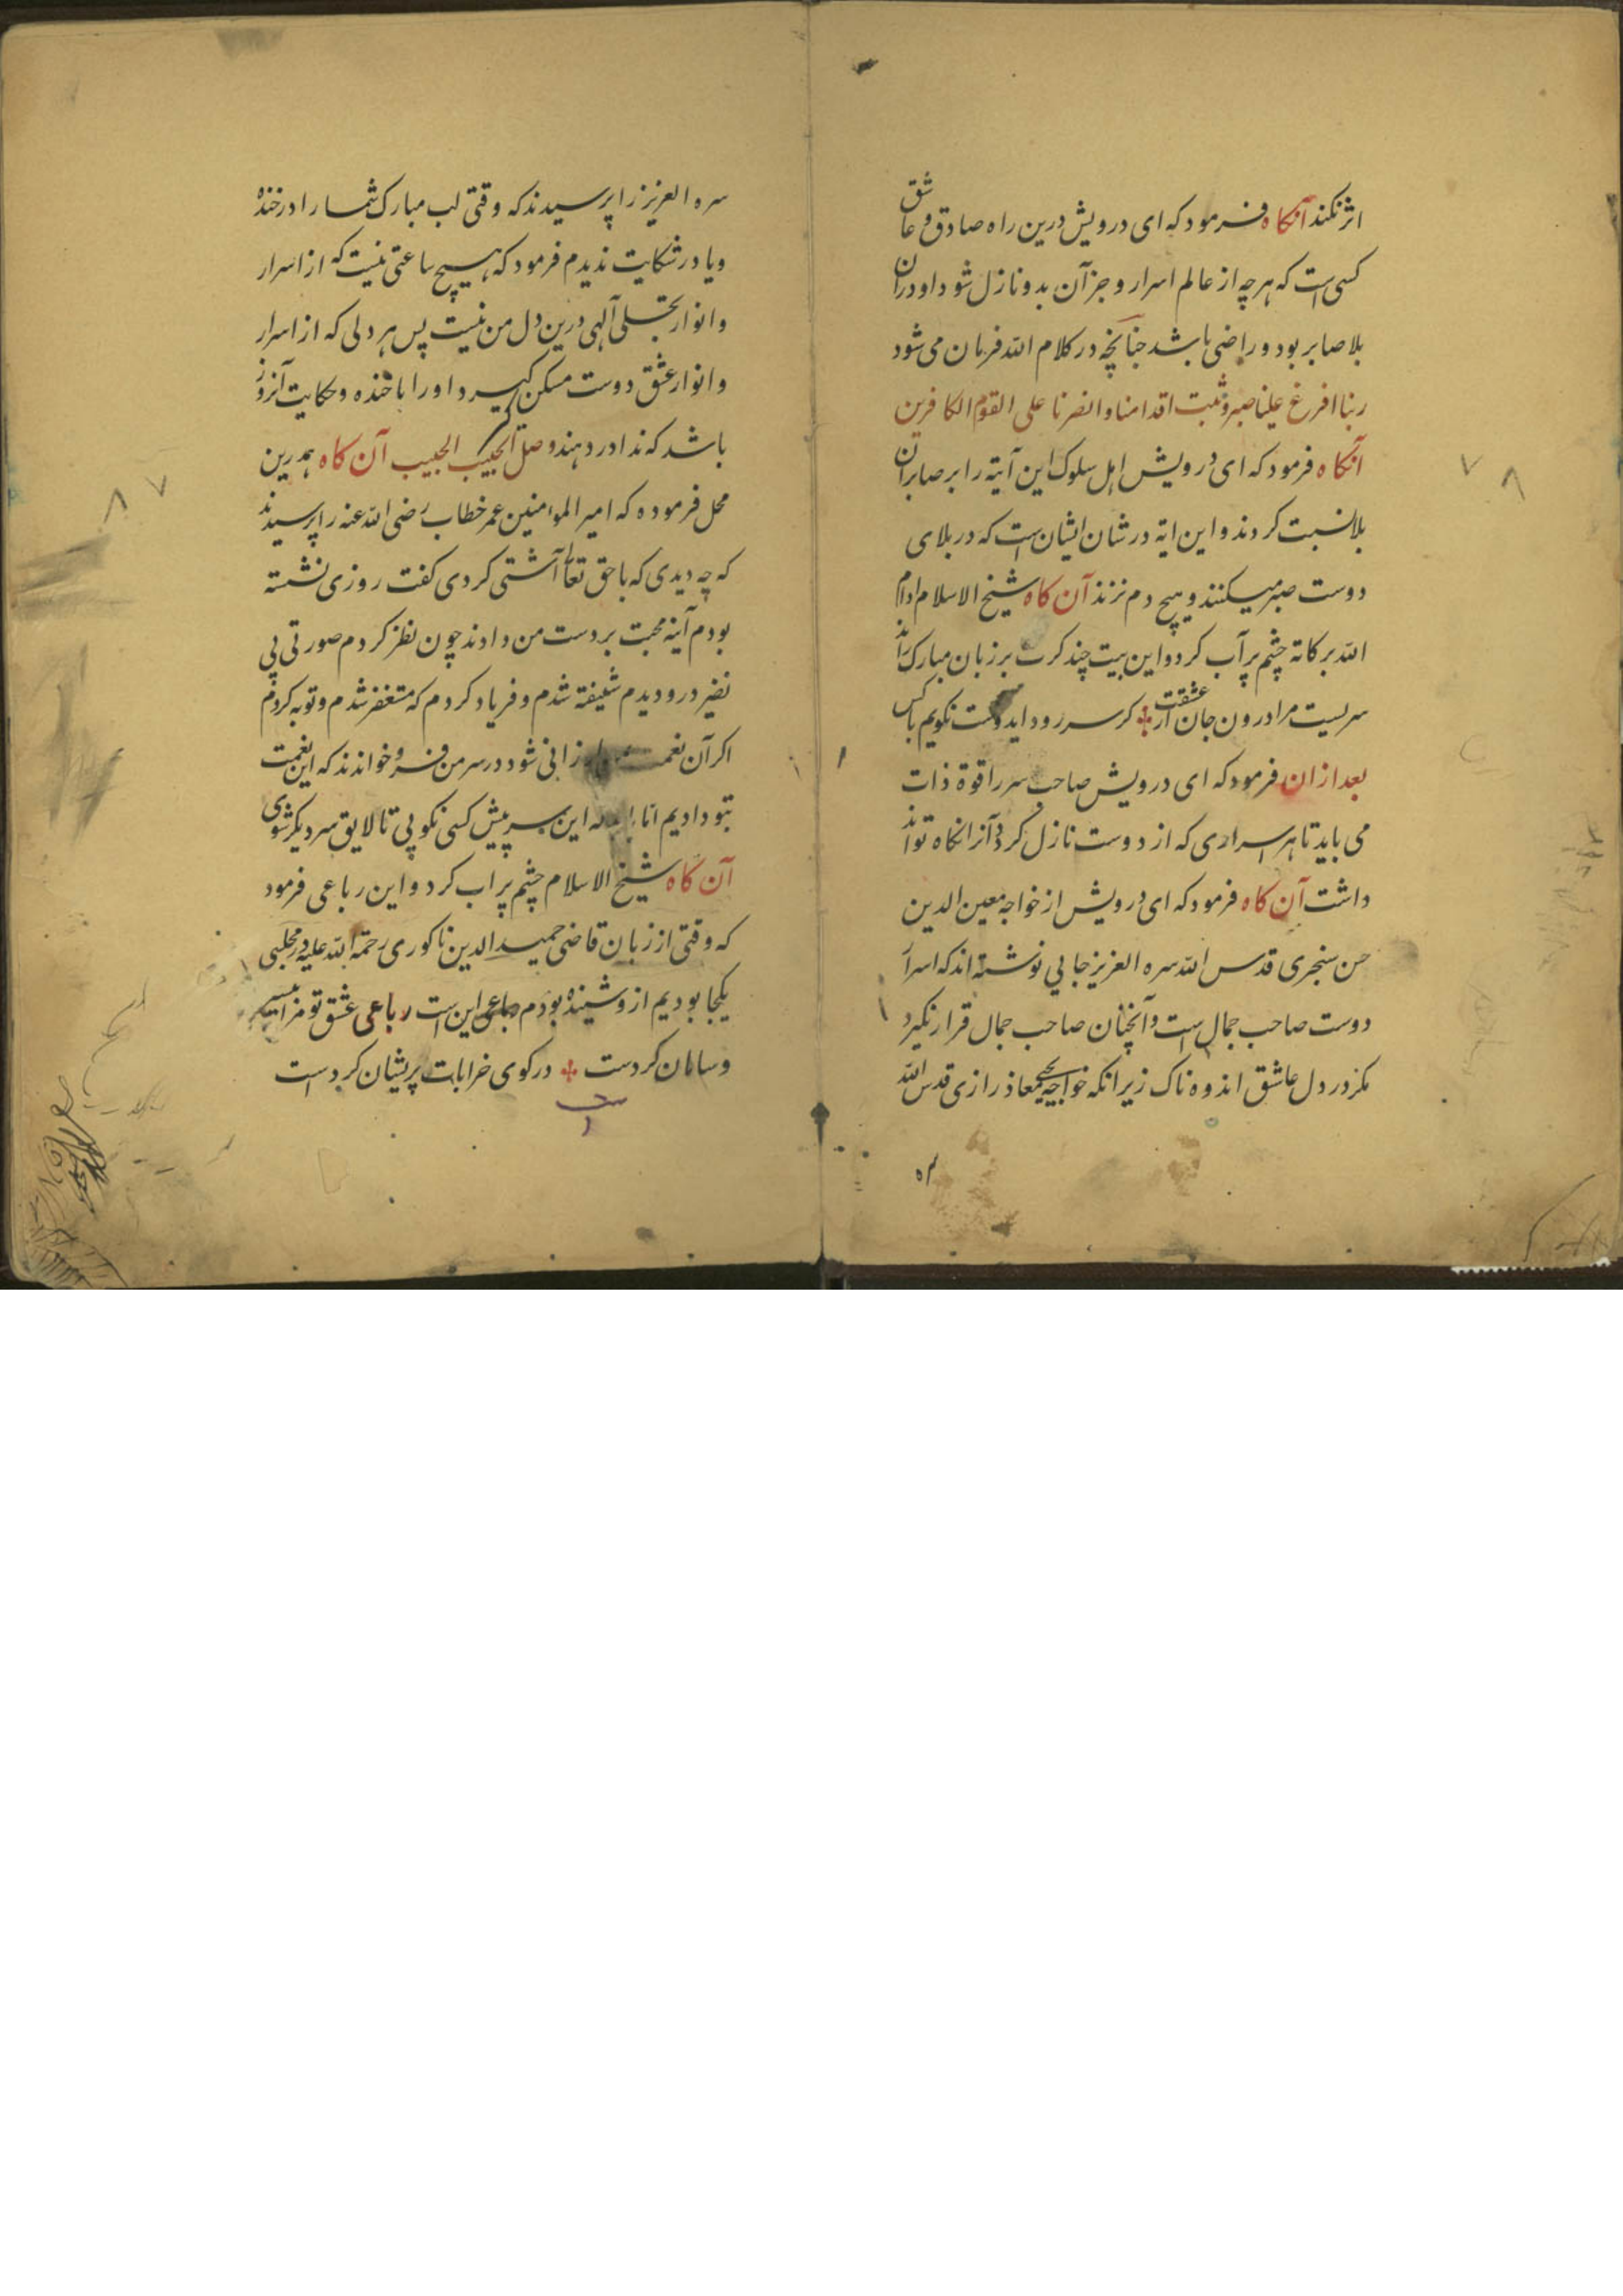 اثر نکند آنکاه فرمود که ای درویش درین راه صادق و عاشق
کسی است که هر چه از عالم اسرار و جز آن بدو نازل شود او دران
بلا صابر بود و راضی باشد چنانچه در کلام الله فرمان می شود
ربنا افرغ علینا صبرا و ثبت اقدامنا وانصرنا علی القوم الکافرین
آنکاه فرمود که ای درویش اهل سلوک این آیة را بر صابران
بلا نسبت کردند و این ایة در شان ایشان است که در بلای
دوست صبر میکنند و هیچ دم نزنند آن کاه شیخ الاسلام دام
الله برکاته چشم پر آب کرد و این بیت چند کرت بر زبان مبارک راند
سریست مرا درون جان از عشقت کر سر رود ایدوست نکویم با کس
بعد ازان فرمود که ای درویش صاحب سر را قوة ذات
می باید تا هر اسراری که از دوست نازل کردد آنرا نکاه تواند
داشت آن کاه فرمود که ای درویش از خواجه معین الدین
حسن سنجری قدس الله سره العزیز جایی نوشته اند که اسرار
دوست صاحب جمال است و آنچنان صاحب جمال قرار نکیرد
مکر در دل عاشق اندوه ناک زیرانکه خواجه یحیی معاذ رازی قدس الله
سره
سره العزیز را پرسیدند که وقتی لب مبارک شما را در خنده
و یا در شکایت ندیدم فرمود که هیچ ساعتی نیست که از اسرار
و انوار تجلی آلهی درین دل من نیست پس هر دلی که از اسرار
و انوار عشق دوست مسکن کیرد او را با خنده و حکایت آنروز
باشد که ندا در دهند وصل الحبیب الی الحبیب آن کاه همدرین
محل فرموده که امیر المؤمنین عمر خطاب رضی الله عنه را پرسیدند
که چه دیدی که با حق تعالی آشتی کردی کفت روزی نشسته
بودم آینه محبت بر دست من دادند چون نظر کردم صورتی بی
نضیر درو دیدم شیفته شدم و فریاد کردم که مستغفر شدم و توبه کردم
اکر آن نعمت ارزانی شود در سر من فرو خواندند که این نعمت
بتو دادیم اما این سر پیش کسی نکویی تا لایق سر دیکر شوی
آن کاه شیخ الاسلام چشم پر اب کرد و این رباعی فرمود
که وقتی از زبان قاضی حمید الدین ناکوری رحمة الله علیه در مجلسی
یکجا بودیم ازو شنیده بودم رباعی این است رباعی عشق تو مرا
و سامان کردست در کوی خرابات پریشان کردست